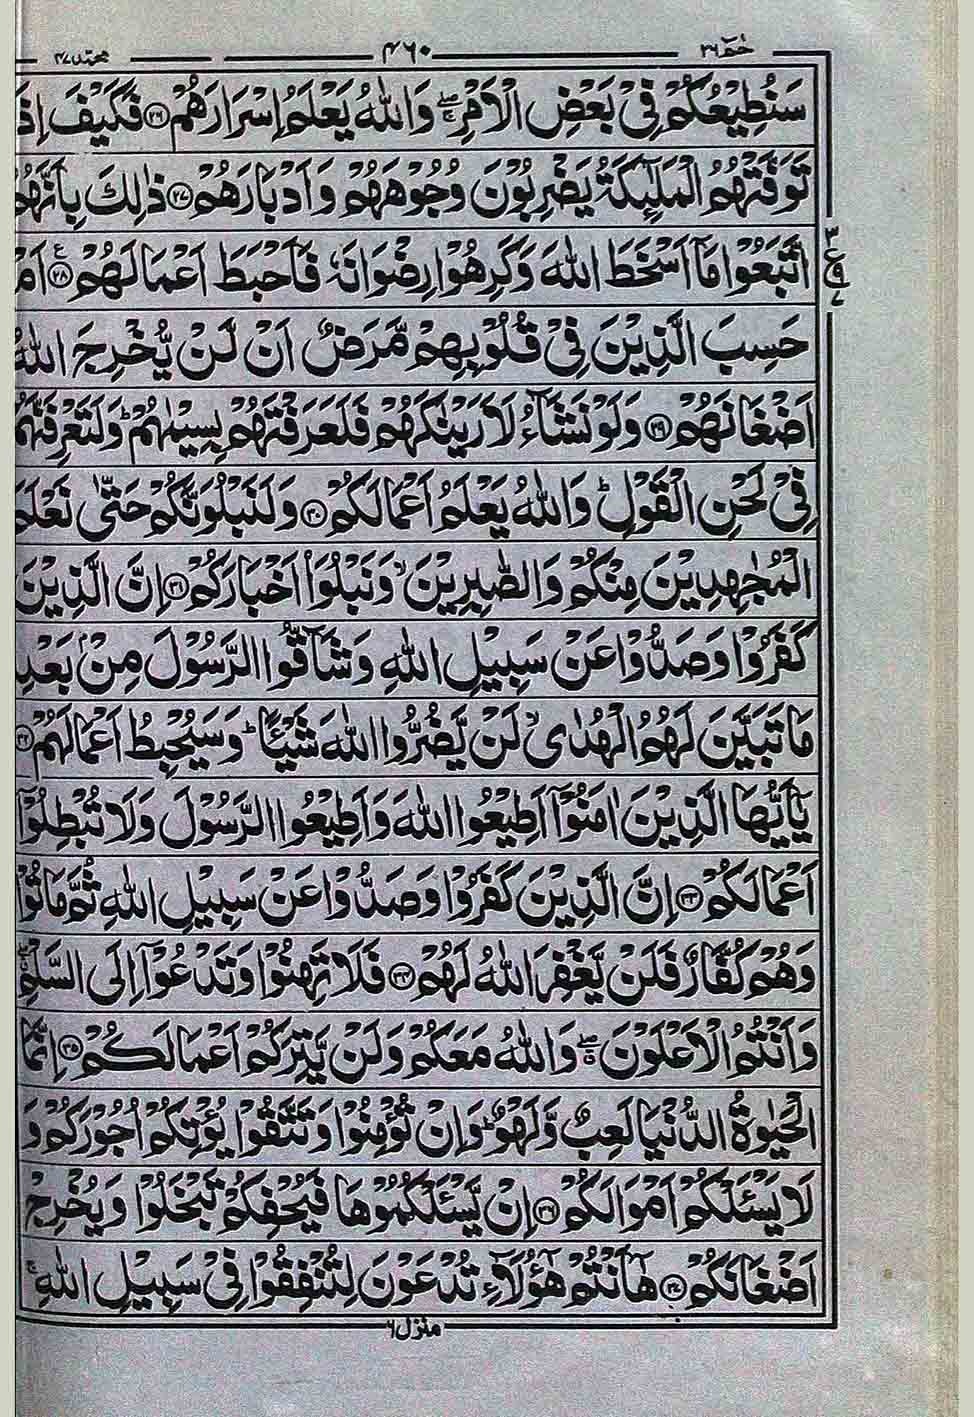 حٰمٓ ۲۶ ۴۶۰ محمّد ۴۷
سَنُطِيْعُكُمْ فِيْ بَعْضِ الْاَمْرِ ۚۖ وَاللّٰهُ يَعْلَمُ اِسْرَارَهُمْ ۲۶ فَكَيْفَ اِذَ
تَوَفَّتْهُمُ الْمَلٰٓئِكَةُ يَضْرِبُوْنَ وُجُوْهَهُمْ وَاَدْبَارَهُمْ ۲۷ ذٰلِكَ بِاَنَّهُمُ
اتَّبَعُوْا مَآ اَسْخَطَ اللّٰهَ وَكَرِهُوْا رِضْوَانَهٗ فَاَحْبَطَ اَعْمَالَهُمْ ۲۸ ع اَمْ
۳ ع ۹ ۷
حَسِبَ الَّذِيْنَ فِيْ قُلُوْبِهِمْ مَّرَضٌ اَنْ لَّنْ يُّخْرِجَ اللّٰهُ
اَضْغَانَهُمْ ۲۹ وَلَوْ نَشَآءُ لَاَرَيْنٰكَهُمْ فَلَعَرَفْتَهُمْ بِسِيْمٰهُمْ ؕ وَلَتَعْرِفَنَّهُمْ
فِيْ لَحْنِ الْقَوْلِ ؕ وَاللّٰهُ يَعْلَمُ اَعْمَالَكُمْ ۳۰ وَلَنَبْلُوَنَّكُمْ حَتّٰى نَعْلَمَ
الْمُجٰهِدِيْنَ مِنْكُمْ وَالصّٰبِرِيْنَ ۙ وَنَبْلُوَا۟ اَخْبَارَكُمْ ۳۱ اِنَّ الَّذِيْنَ
كَفَرُوْا وَصَدُّوْا عَنْ سَبِيْلِ اللّٰهِ وَشَآقُّوا الرَّسُوْلَ مِنْۢ بَعْدِ
مَا تَبَيَّنَ لَهُمُ الْهُدٰى ۙ لَنْ يَّضُرُّوا اللّٰهَ شَيْـًٔا ؕ وَسَيُحْبِطُ اَعْمَالَهُمْ ۳۲
يٰٓاَيُّهَا الَّذِيْنَ اٰمَنُوْٓا اَطِيْعُوا اللّٰهَ وَاَطِيْعُوا الرَّسُوْلَ وَلَا تُبْطِلُوْٓا
اَعْمَالَكُمْ ۳۳ اِنَّ الَّذِيْنَ كَفَرُوْا وَصَدُّوْا عَنْ سَبِيْلِ اللّٰهِ ثُمَّ مَاتُوْا
وَهُمْ كُفَّارٌ فَلَنْ يَّغْفِرَ اللّٰهُ لَهُمْ ۳۴ فَلَا تَهِنُوْا وَتَدْعُوْٓا اِلَى السَّلْمِ ۖۗ
وَاَنْتُمُ الْاَعْلَوْنَ ۖۗ وَاللّٰهُ مَعَكُمْ وَلَنْ يَّتِرَكُمْ اَعْمَالَكُمْ ۳۵ اِنَّمَا
الْحَيٰوةُ الدُّنْيَا لَعِبٌ وَّلَهْوٌ ؕ وَاِنْ تُؤْمِنُوْا وَتَتَّقُوْا يُؤْتِكُمْ اُجُوْرَكُمْ وَ
لَا يَسْـَٔلْكُمْ اَمْوَالَكُمْ ۳۶ اِنْ يَّسْـَٔلْكُمُوْهَا فَيُحْفِكُمْ تَبْخَلُوْا وَيُخْرِجْ
اَضْغَانَكُمْ ۳۷ هٰٓاَنْتُمْ هٰٓؤُلَآءِ تُدْعَوْنَ لِتُنْفِقُوْا فِيْ سَبِيْلِ اللّٰهِ ۚ
منزل ۶